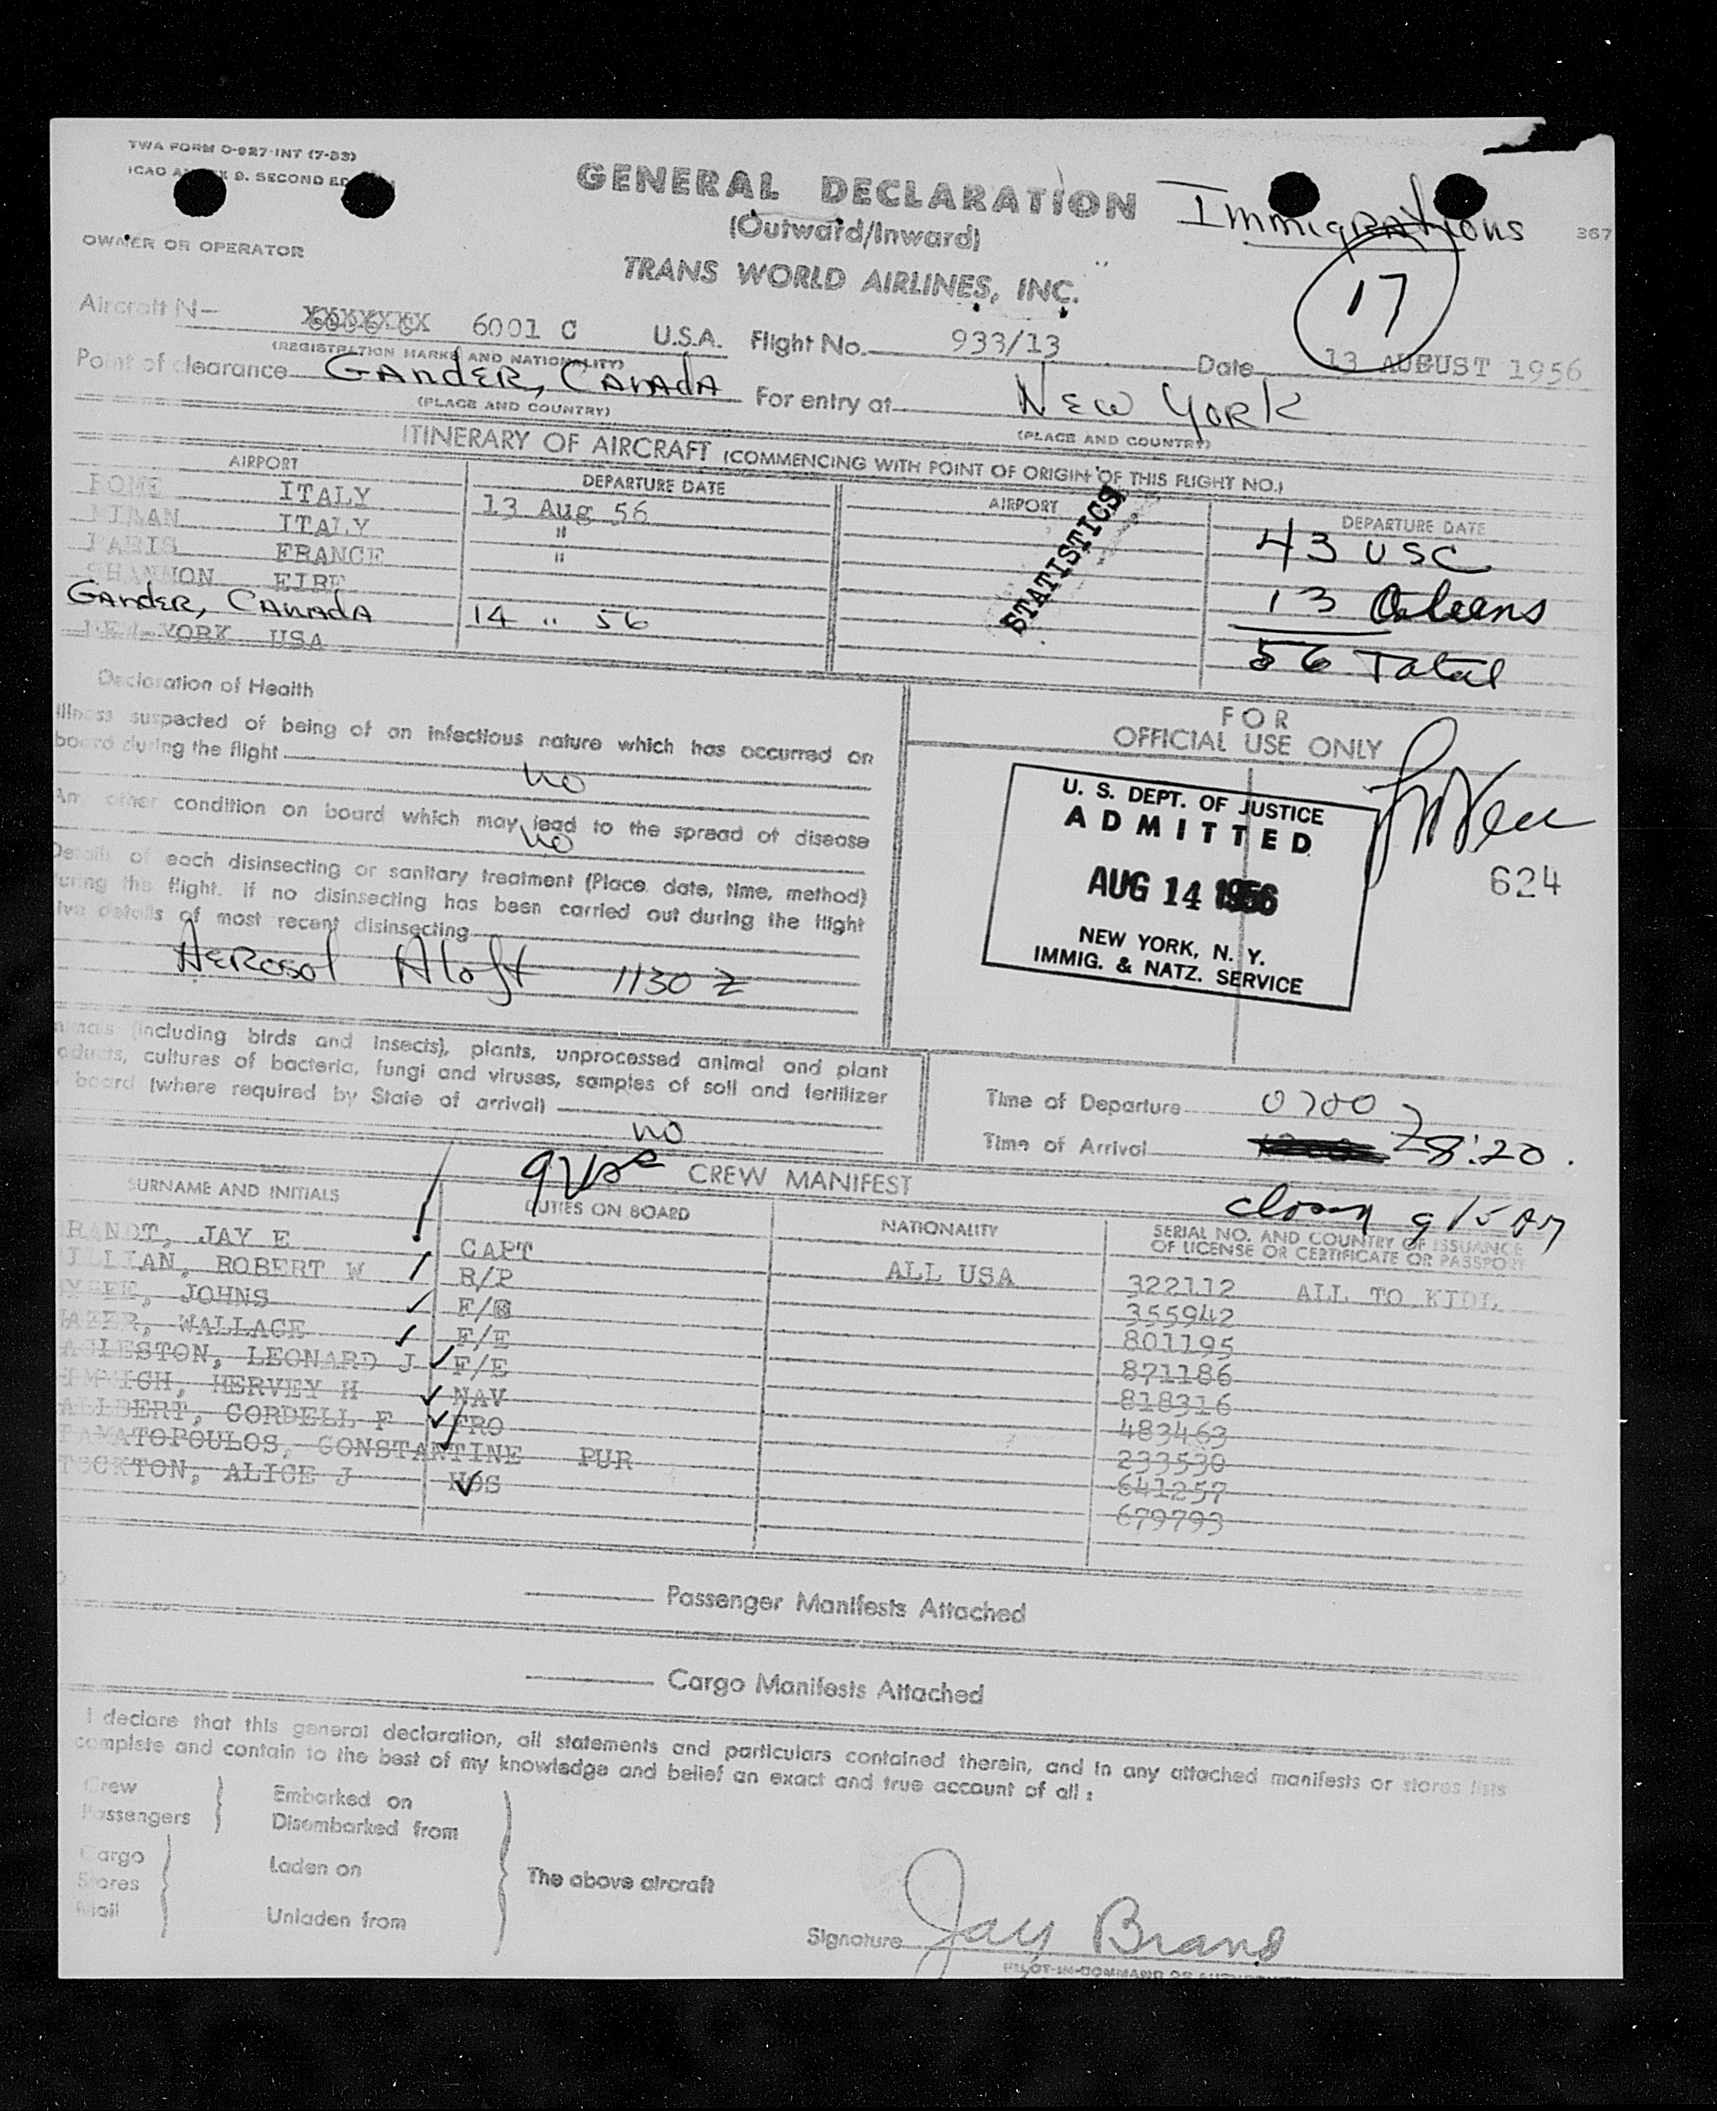 TWA FORM O-927-INT (7-53)
ICAO 9. SECOND
GENERAL DECLARATION
(Outward/Inward)
Immigrations
367
OWNER OR OPERATOR
TRANS WORLD AIRLINES, INC.
17
Aircraft N— 6001 C U.S.A. Flight No. 933/13 Date 13 AUGUST 1956
(REGISTRATION MARKS AND NATIONALITY)
Point of clearance GANDER, CANADA For entry at NEW YORK
(PLACE AND COUNTRY) (PLACE AND COUNTRY)
ITINERARY OF AIRCRAFT (COMMENCING WITH POINT OF ORIGIN OF THIS FLIGHT NO.)
AIRPORT DEPARTURE DATE AIRPORT DEPARTURE DATE
ROME ITALY 13 Aug 56
MILAN ITALY "
PARIS FRANCE "
SHANNON EIRE
GANDER, CANADA 14 " 56
NEW YORK USA
STATISTICS
43 USC
13
56 Total
Declaration of Health
Illness suspected of being of an infectious nature which has occurred on
board during the flight
no
Any other condition on board which may lead to the spread of disease
no
Details of each disinsecting or sanitary treatment (Place, date, time, method)
during the flight. If no disinsecting has been carried out during the flight
give details of most recent disinsecting
AEROSOL Aloft 1130 Z
FOR
OFFICIAL USE ONLY
U. S. DEPT. OF JUSTICE
ADMITTED
AUG 14 1956
NEW YORK, N. Y.
IMMIG. & NATZ. SERVICE
624
Animals (including birds and insects), plants, unprocessed animal and plant
products, cultures of bacteria, fungi and viruses, samples of soil and fertilizer
board (where required by State of arrival)
no
Time of Departure 0700
Time of Arrival 8:20
CREW MANIFEST
SURNAME AND INITIALS DUTIES ON BOARD NATIONALITY SERIAL NO. AND COUNTRY OF ISSUANCE
OF LICENSE OR CERTIFICATE OR PASSPORT
BRANDT, JAY E CAPT ALL USA 322112 ALL TO KIDL
ROBERT W R/P 355942
JOHNS 801195
WALLACE F/E 871186
LEONARD J F/E 818316
HERVEY H NAV 483463
CORDELL F FRO 233530
CONSTANTINE PUR 641257
STOCKTON, ALICE J HOS 679793
Passenger Manifests Attached
Cargo Manifests Attached
I declare that this general declaration, all statements and particulars contained therein, and in any attached manifests or stores lists
complete and contain to the best of my knowledge and belief an exact and true account of all :
Crew
Passengers
Embarked on
Disembarked from
Cargo
Stores
Mail
Laden on
Unladen from
The above aircraft
Signature Jay Brand
PILOT-IN-COMMAND OR